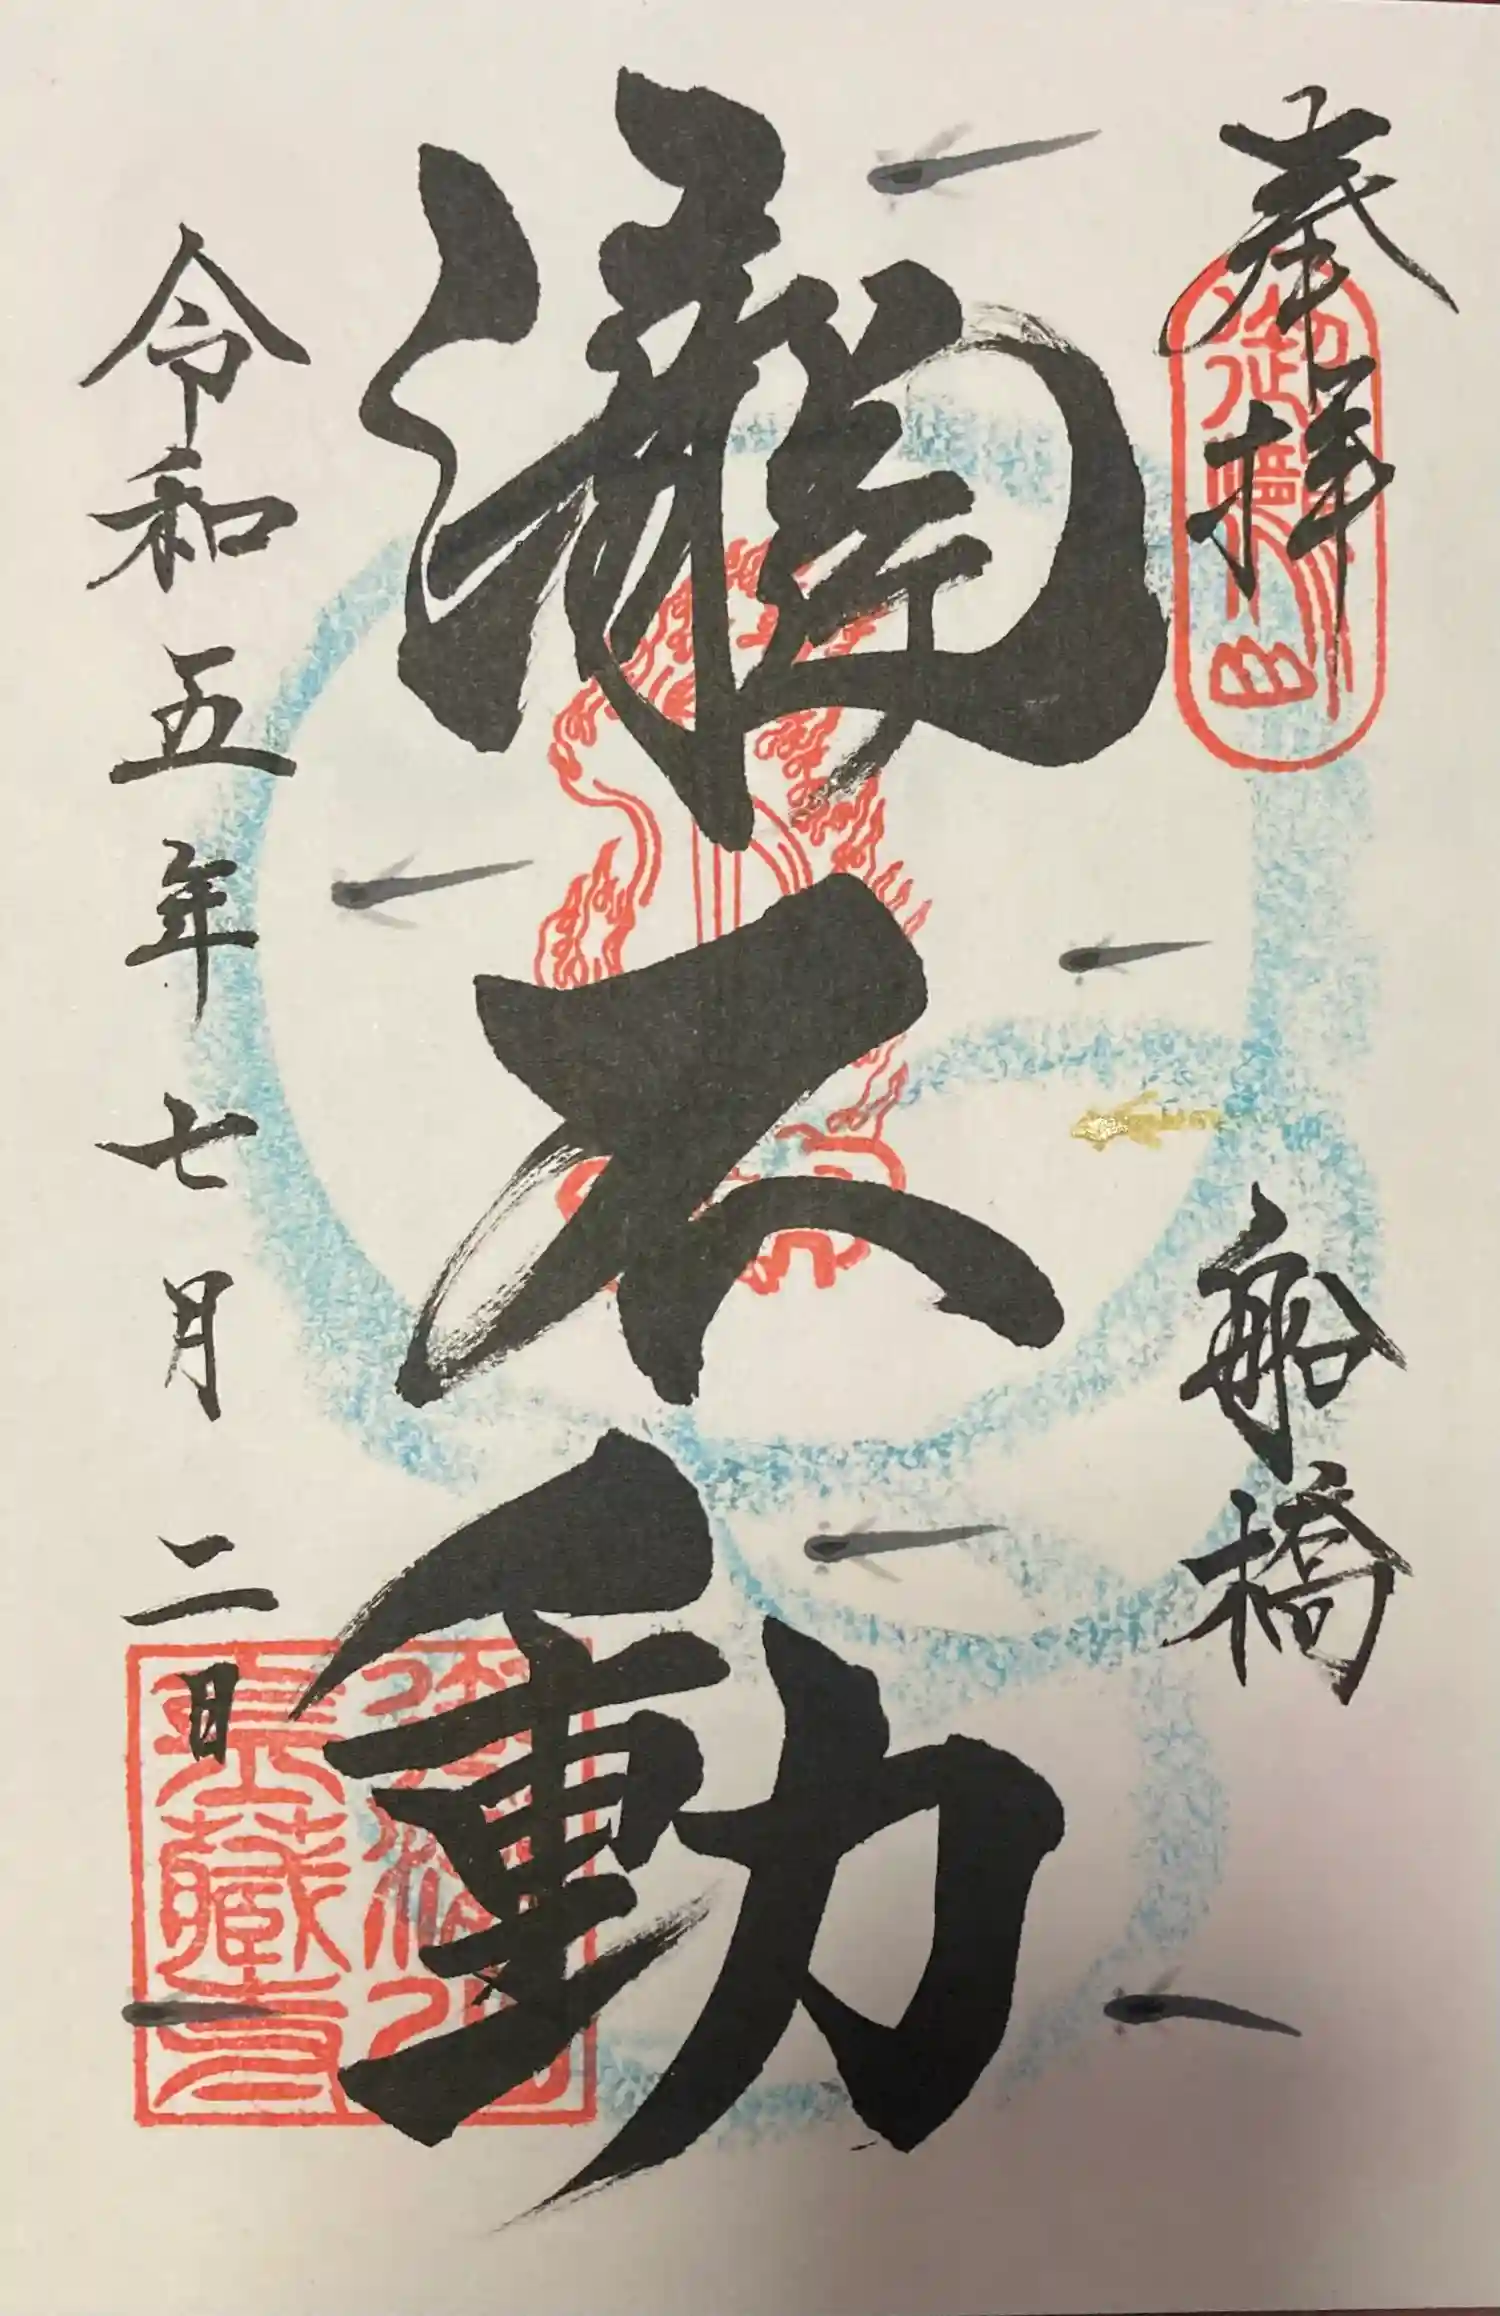 奉拝
船橋
瀧不動
令和五年七月二日